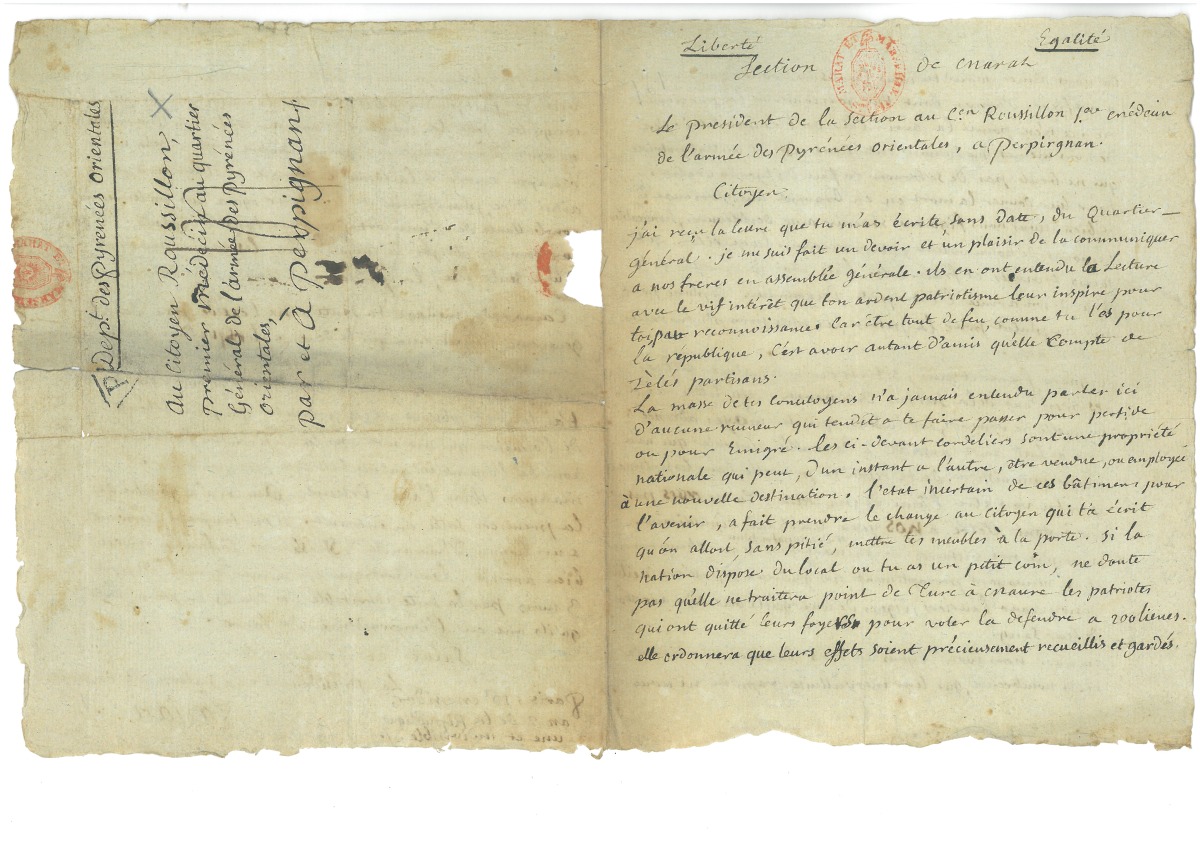 Dept. des Pyrenées Orientales
Au Citoyen Roussillon,
premier médecin au quartier
Général de l'armée des Pyrénées
Orientales,
par et À Perpignan
P
Liberté Egalité
Section de Marat
Le president de la Section au C.en Roussillon 1.er Médecin
de l'armée des Pyrénées orientales, a Perpirgnan.
Citoyen,
j'ai reçu la lettre que tu m'as écrite, sans date, du Quartier-
général. je me suis fait un devoir et un plaisir de la communiquer
a nos freres en assemblée générale. ils en ont entendu la Lecture
avec le vif intérêt que ton ardent patriotisme leur inspire pour
toi par reconnoissance. Car être tout de feu, comme tu l'es pour
la république, c'est avoir autant d'amis qu'elle Compte de
zèlés partisans.
La masse de tes concitoyens n'a jamais entendu parler ici
d'aucune rumeur qui tendit a te faire passer pour perfide
ou pour Emigré. Les ci-devant cordeliers sont une propriété
nationale qui peut, d'un instant a l'autre, être vendue, ou employée
à une nouvelle destination. l'etat incertain de ces bâtimens pour
l'avenir, a fait prendre le change au Citoyen qui t'a écrit
qu'on alloit, sans pitié, mettre tes meubles à la porte. si la
nation dispose du local ou tu as un petit coin, ne doute
pas qu'elle ne traitera point de Turc à Maure les patriotes
qui ont quitté leurs foyers pour voler la defendre a 200 lieues.
elle ordonnera que leurs effets soient précieusement recueillis et gardés.